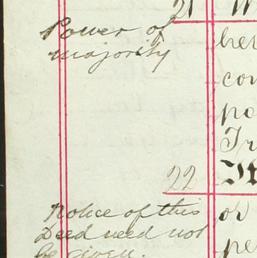 21
Power of
majority
her
con
po
Tr
22
Notice of this
Deed need not
be given.
or
pe